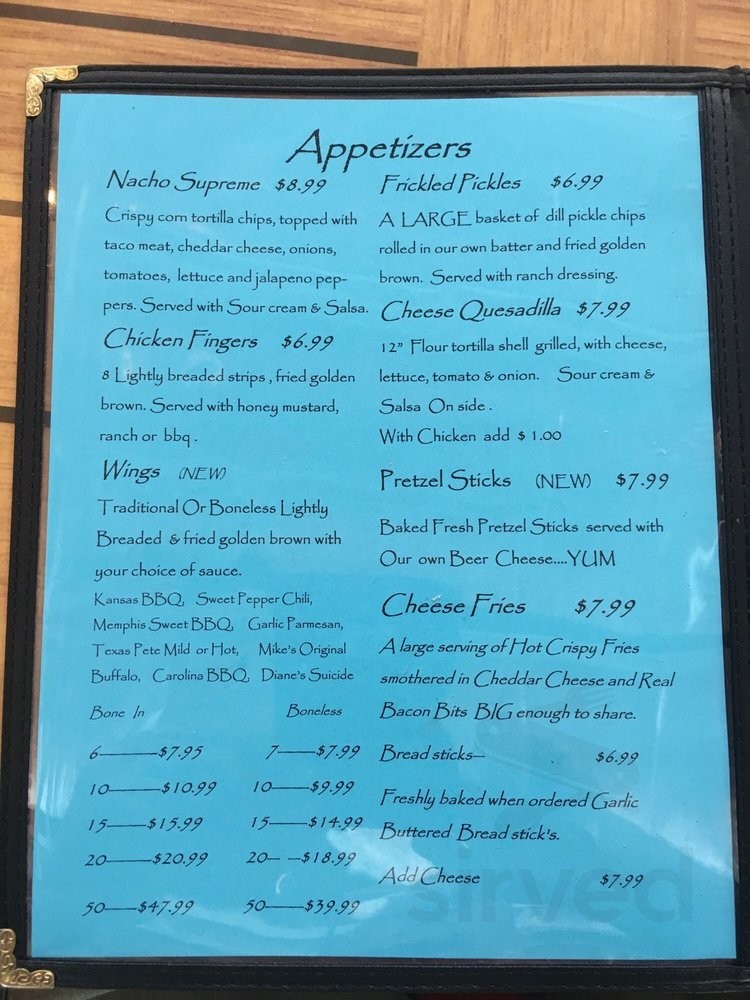 Appetizers
Nacho Supreme $8.99
Crispy corn tortilla chips, topped with
taco meat, cheddar cheese, onions,
tomatoes, lettuce and jalapeno pep-
pers. Served with Sour cream & Salsa.
Chicken Fingers $6.99
8 Lightly breaded strips, fried golden
brown. Served with honey mustard,
ranch or bbq.
Wings (NEW)
Traditional Or Boneless Lightly
Breaded & fried golden brown with
your choice of sauce.
Kansas BBQ, Sweet Pepper Chili,
Memphis Sweet BBQ, Garlic Parmesan,
Texas Pete Mild or Hot, Mike's Original
Buffalo, Carolina BBQ, Diane's Suicide
Bone In Boneless
6———$7.95 7——$7.99
10———$10.99 10——$9.99
15——$15.99 15——$14.99
20———$20.99 20— —$18.99
50——$47.99 50——$39.99
Frickled Pickles $6.99
A LARGE basket of dill pickle chips
rolled in our own batter and fried golden
brown. Served with ranch dressing.
Cheese Quesadilla $7.99
12" Flour tortilla shell grilled, with cheese,
lettuce, tomato & onion. Sour cream &
Salsa On side.
With Chicken add $1.00
Pretzel Sticks (NEW) $7.99
Baked Fresh Pretzel Sticks served with
Our own Beer Cheese....YUM
Cheese Fries $7.99
A large serving of Hot Crispy Fries
smothered in Cheddar Cheese and Real
Bacon Bits BIG enough to share.
Bread sticks— $6.99
Freshly baked when ordered Garlic
Buttered Bread stick's.
Add Cheese $7.99
sirved